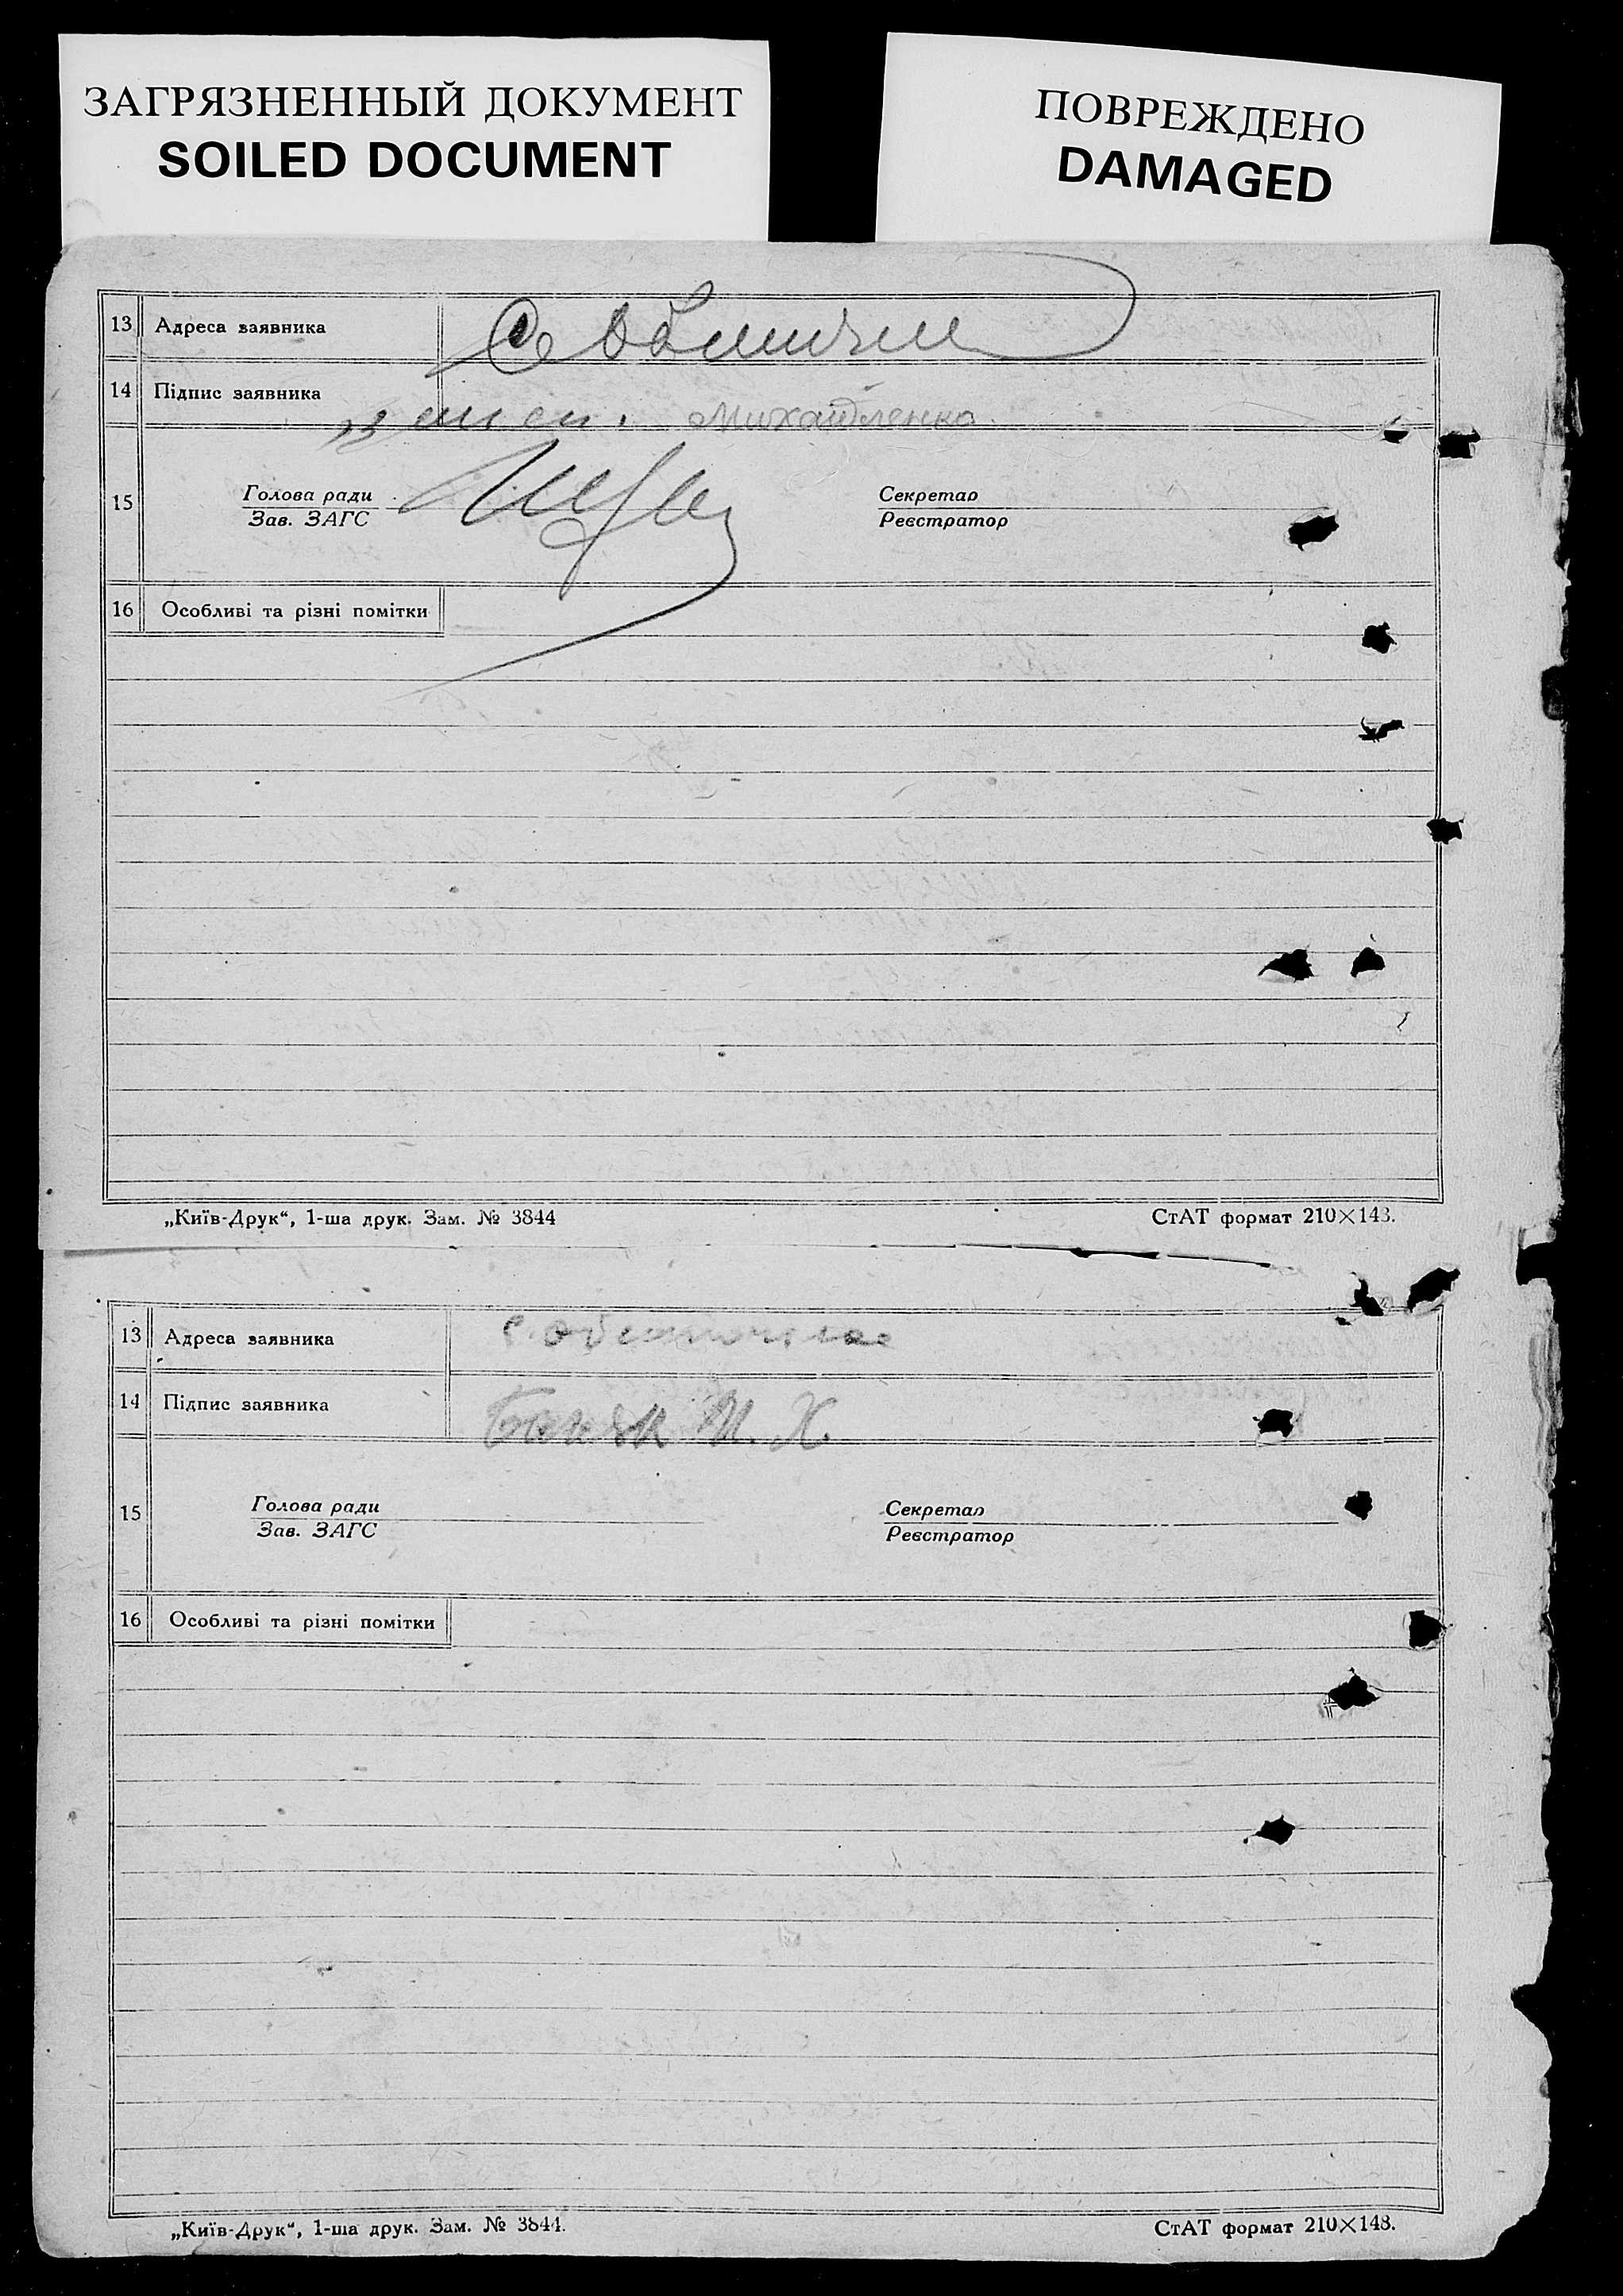 ЗАГРЯЗНЕННЫЙ ДОКУМЕНТ
SOILED DOCUMENT
ПОВРЕЖДЕНО
DAMAGED
13 Адреса заявника
14 Підпис заявника Михайленко
15 Голова ради Секретар
Зав. ЗАГС Реєстратор
16 Особливі та різні помітки
„Київ-Друк“, 1-ша друк. Зам. № 3844 СтАТ формат 210×143.
13 Адреса заявника
14 Підпис заявника М. Х.
15 Голова ради Секретар
Зав. ЗАГС Реєстратор
16 Особливі та різні помітки
„Київ-Друк“, 1-ша друк. Зам. № 3844. СтАТ формат 210×148.